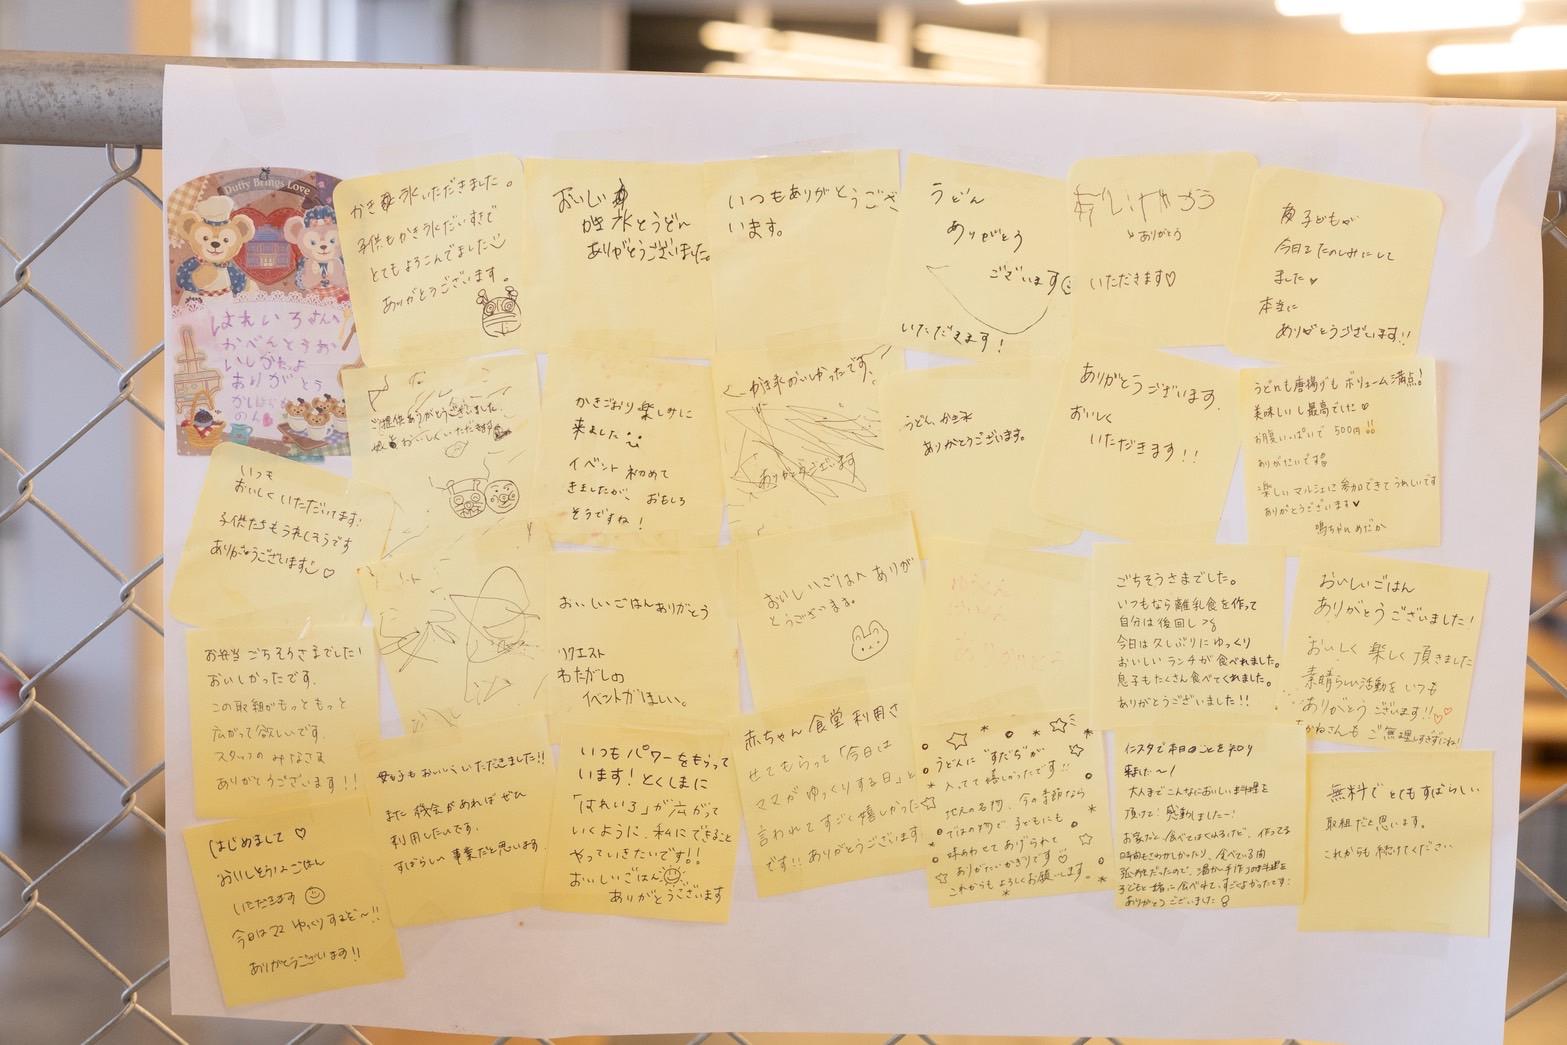 Duffy Brings Love
はれいろさんへ
おべんとうお
いしかったよ
ありがとう
のん
かき氷いただきました。
子供もかき氷だいすきで
とてもよろこんでました
ありがとうございます。
おいしい
かき氷とうどん
ありがとうございました。
いつもありがとうござ
います。
うどん
ありがとう
ございます
いただきます!
ありがとう
いただきます♡
子どもが
今日をたのしみにして
ました
本当に
ありがとうございます!!
ご提供ありがとうございました。
おいしくいただきます
かきごおり楽しみに
来ました
イベント初めて
きましたが、おもしろ
そうですね!
かき氷おいしかったです。
ありがとうございます
うどん、かき氷
ありがとうございます。
ありがとうございます。
おいしく
いただきます!!
うどんも唐揚げもボリューム満点!
美味しいし最高でした♡
お腹いっぱいで500円!!
ありがたいです
楽しいマルシェに参加できてうれしいです
ありがとうございます♥
鳴ちゃんめだか
いつも
おいしくいただいてます!
子供たちもうれしそうです
ありがとうございます♡
おいしいごはんありがとう
リクエスト
わたがしの
イベントがほしい。
おいしいごはんありが
とうございます。
ごちそうさまでした。
いつもなら離乳食を作って
自分は後回し
今日は久しぶりにゆっくり
おいしいランチが食べれました。
息子もたくさん食べてくれました。
ありがとうございました!!
おいしいごはん
ありがとうございました!
おいしく楽しく頂きました
素晴らしい活動をいつも
ありがとうございます!!♡♡
ご無理しすぎずにね!
お弁当ごちそうさまでした!
おいしかったです。
この取組がもっともっと
広がって欲しいです。
スタッフのみなさま
ありがとうございます!!
母子もおいしくいただきました!!
また機会があればぜひ
利用したいです。
すばらしい事業だと思います。
いつもパワーをもらって
います!とくしまに
「はれいろ」が広がって
いくように、私にできること
やっていきたいです!!
おいしいごはん
ありがとうございます
赤ちゃん食堂利用さ
せてもらって「今日は
ママがゆっくりする日」と
言われてすごく嬉しかった
です!!ありがとうございます
うどんに"すだち"が
入ってて嬉しかったです!!
地元の名物、今の季節なら
ではの物で子どもにも
味あわせてあげられて
ありがたいかぎりです♡
これからもよろしくお願いします。
インスタで本日のことを知り
来ました〜!
大人までこんなにおいしい料理を
頂けて!感動しましたー!
お家だと、食べてはくれるけど、作ってる
時間もさわがしかったり、食べている間
孤独だったので、温かい手作りの料理を
子どもと一緒に食べれて、すごくよかったです!
ありがとうございました
はじめまして♡
おいしそうなごはん
いただきます
今日はママゆっくりするぞ〜!!
ありがとうございます!!
無料でとてもすばらしい
取組だと思います。
これからも続けてください